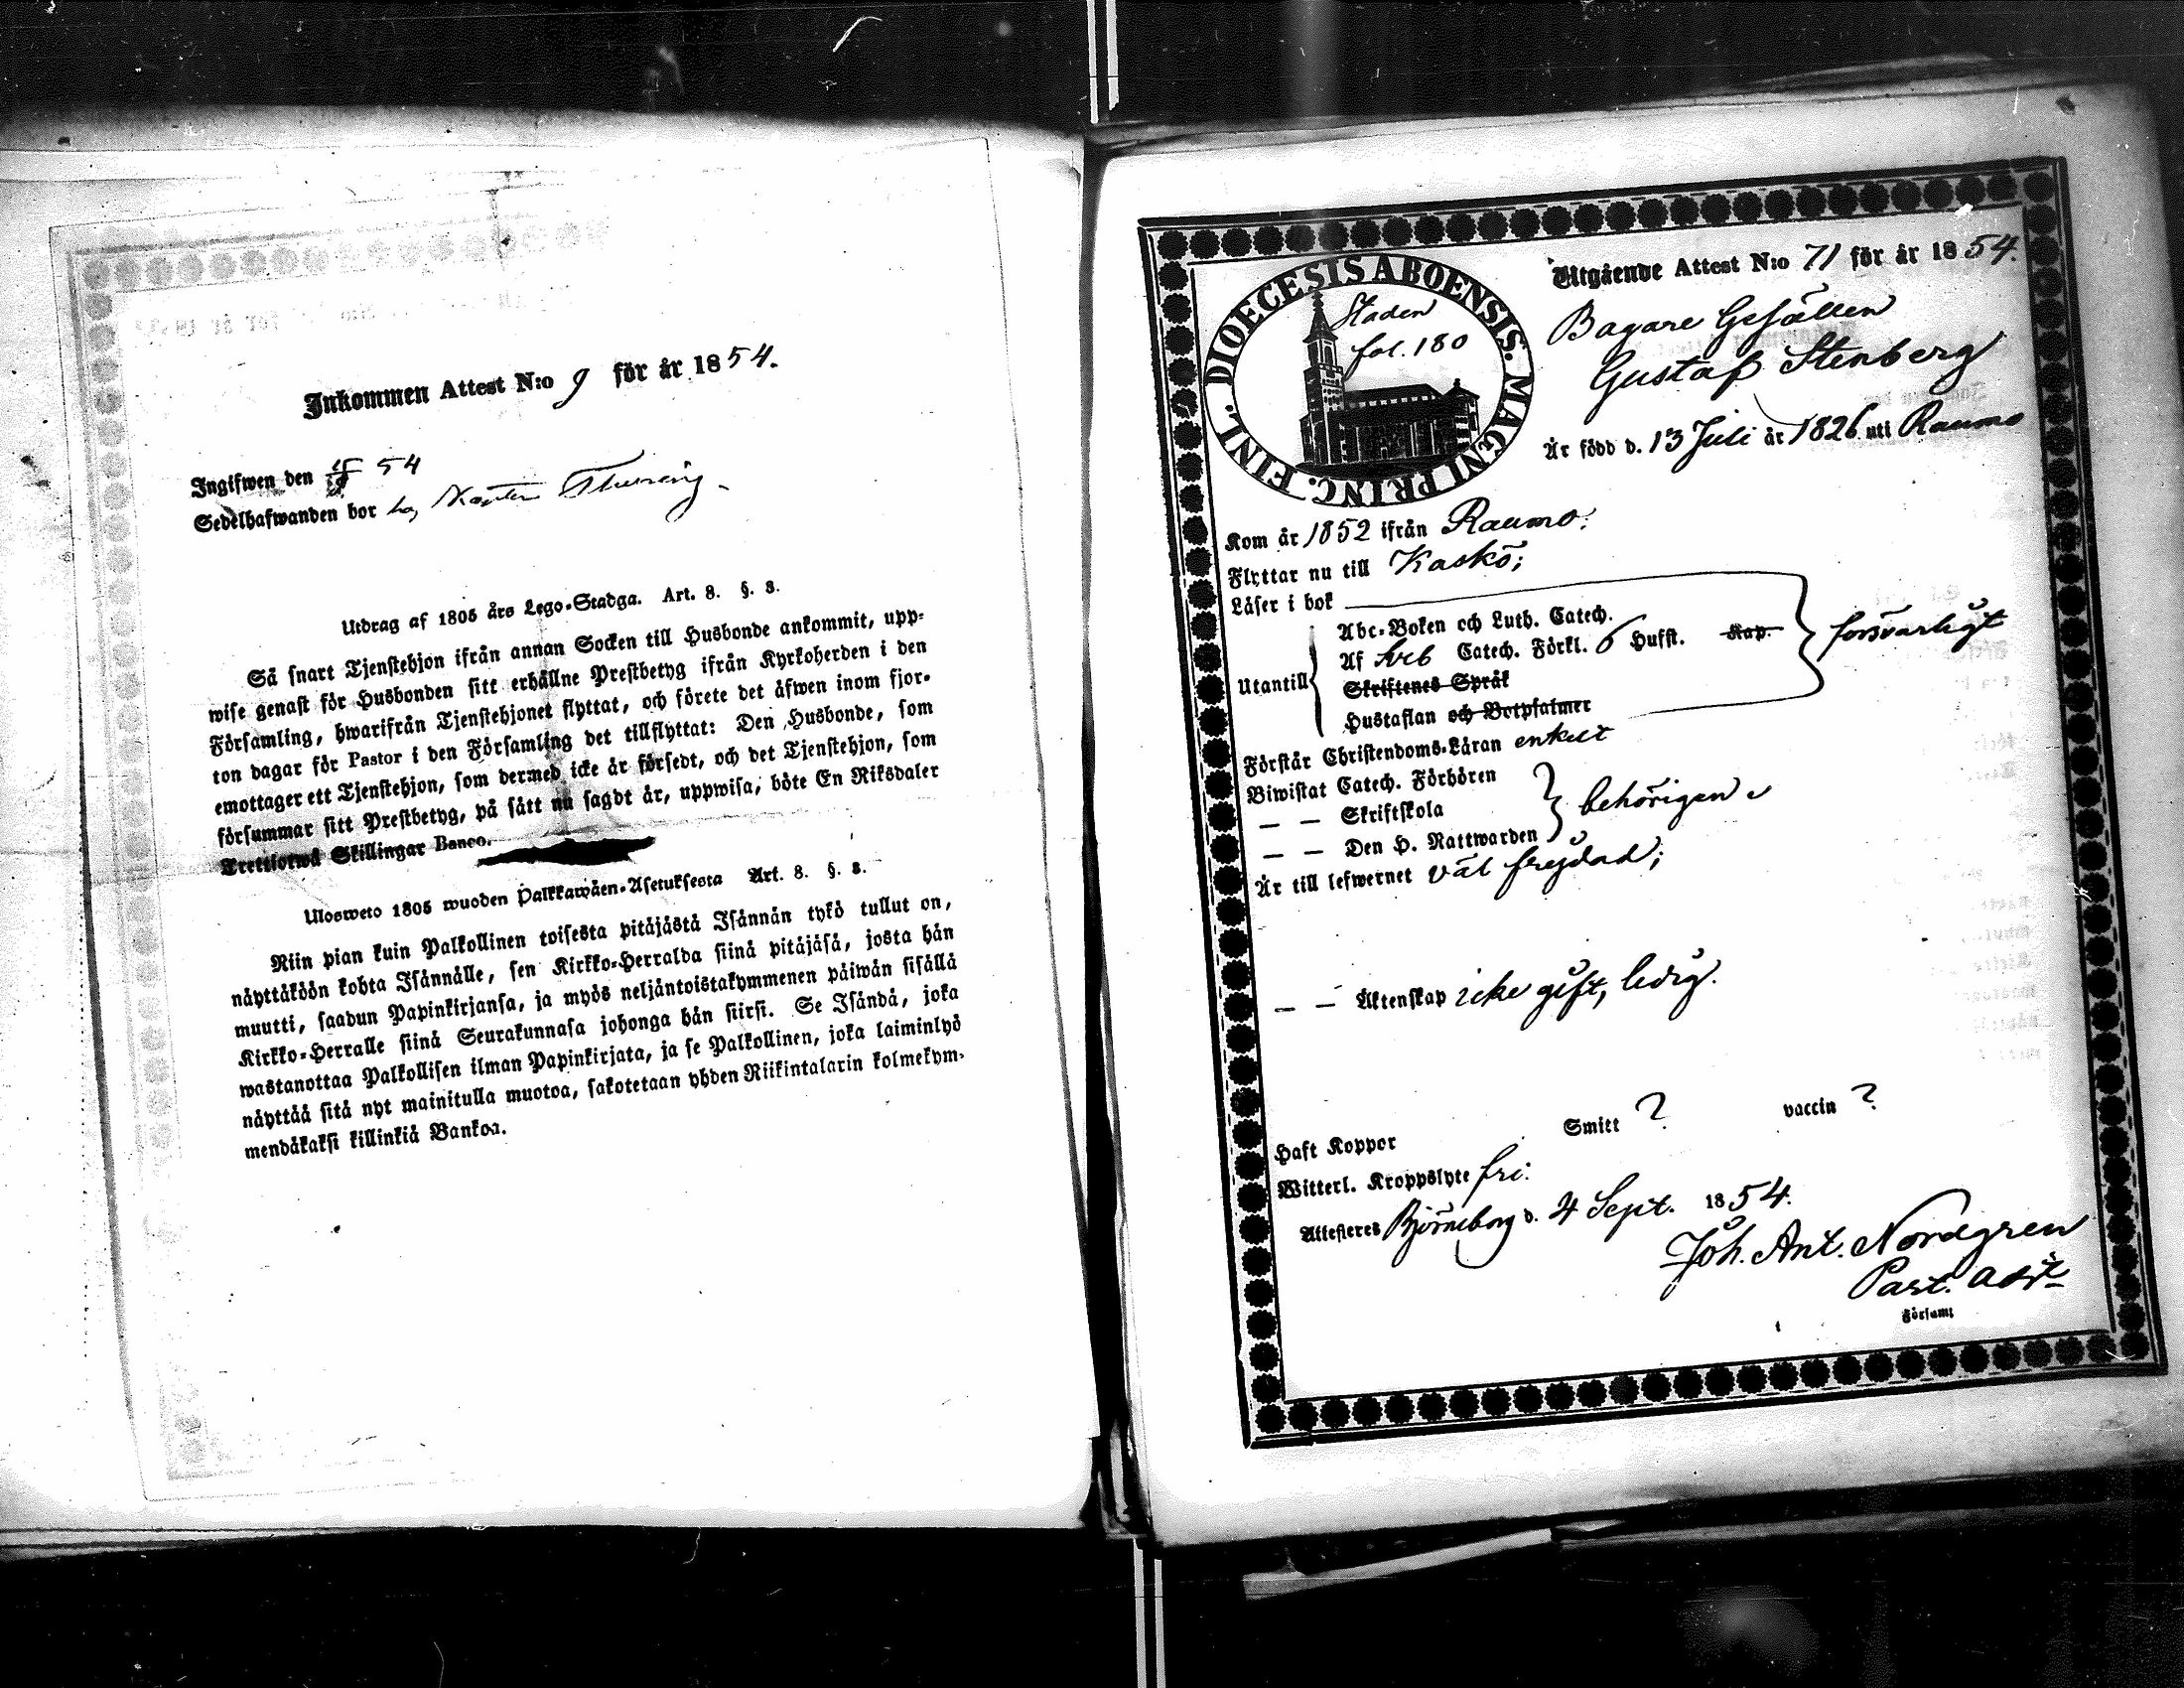 Inkommen Attest N:o 9 för år 1854.
Ingifwen den 54
Sedelhafwanden bor hos
Utdrag af 1805 års Lego-Stadga. Art. 8. §. 3.
Så snart Tjenstehjon ifrån annan Socken till Husbonde ankommit, upp-
wise genast för Husbonden sitt erhållne Prestbetyg ifrån Kyrkoherden i den
Församling, hwarifrån Tjenstehjonet flyttat, och förete det äfwen inom fjor-
ton dagar för Pastor i den Församling det tillflyttat: Den Husbonde, som
emottager ett Tjenstehjon, som dermed icke är försedt, och det Tjenstehjon, som
försummar sitt Prestbetyg, på sätt nu sagdt är, uppwisa, böte En Riksdaler
Trettiotwå Skillingar Banco.
Ulosweto 1805 wuoden Palkkawäen-Asetuksesta Art. 8. §. 3.
Niin pian kuin Palkollinen toisesta pitäjästä Isännän tykö tullut on,
näyttäköön kohta Isännälle, sen Kirkko-Herralda siinä pitäjäsä, josta hän
muutti, saadun Papinkirjansa, ja myös neljäntoistakymmenen päiwän sisällä
Kirkko-Herralle siinä Seurakunnasa johonga hän siirsi. Se Isändä, joka
wastanottaa Palkollisen ilman Papinkirjata, ja se Palkollinen, joka laiminlyö
näyttää sitä nyt mainitulla muotoa, sakotetaan yhden Riikintalarin kolmekym-
mendäkaksi killinkiä Bankoa.
DIOECESIS ABOENSIS. MAGNI PRINC. FINL.
Staden
fol. 180
Utgående Attest N:o 71 för år 1854.
Bagare Gesällen
Gustaf Stenberg
Är född d. 13 Juli år 1826 uti Raumo
Kom år 1852 ifrån Raumo:
Flyttar nu till Kaskö;
Läser i bok
Utantill
Abc-Boken och Luth. Catech.
Af Sveb Catech. Förkl. 6 Hufst. Kap. försvarligt
Skriftenes Språk
Hustaflan och Botpsalmer
Förstår Christendoms-Läran enkelt
Biwistat Catech. Förhören
— — Skriftskola behörigen
— — Den H. Nattwarden
Är till lefwernet väl frejdad;
— — Äktenskap icke gift, ledig.
Haft Koppor Smitt ? vaccin ?
Witterl. Kroppslyte fri:
Attesteres Björneborg d. 4 Sept. 1854.
Joh. Ant. Nordgren
Past. adj.
Församl